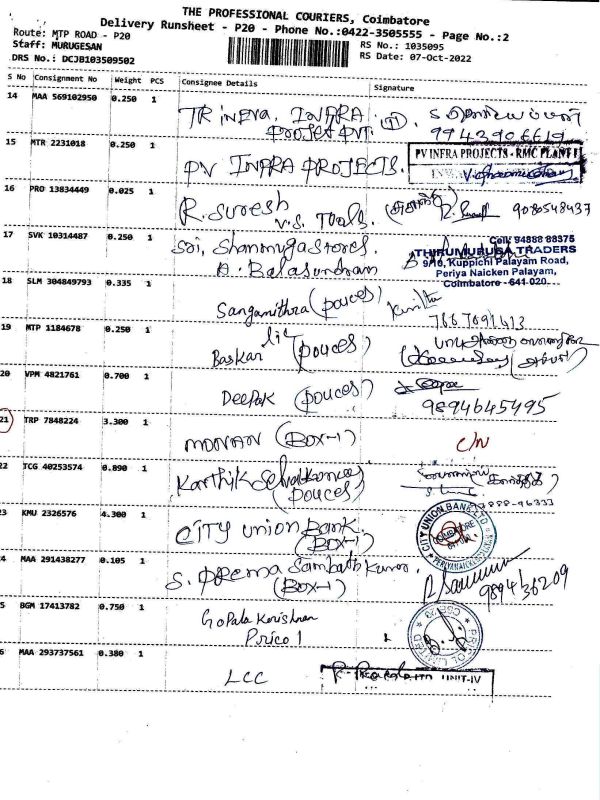 THE PROFESSIONAL COURIERS, Coimbatore
Delivery Runsheet - P20 - Phone No.:0422-3505555 - Page No.:2
Route: MTP ROAD - P20
RS No.: 1035095
Staff: MURUGESAN
RS Date: 07-Oct-2022
DRS No.: DCJB103509502
S No Consignment No Weight PCS Consignee Details Signature
14 MAA 569102950 0.250 1
INFRA
PVT.
9943906619
15 MTR 2231018 0.250 1
PV INFRA PROJECTS.
PV INFRA PROJECTS - RMC PLANT I
16 PRO 13834449 0.025 1
R. Suresh
V.S. Tools.
9080548437
17 SVK 10314487 0.250 1
Sri, Shanmuga Stores.
A. Balasundram
Cell: 94888 88375
THIRUMURUGA TRADERS
9/10, Kuppichi Palayam Road,
Periya Naicken Palayam,
Coimbatore - 641 020.
18 SLM 304849793 0.335 1
Sangamithra (pouces)
19 MTP 1184678 0.250 1
Baskar (pouces)
20 VPM 4821761 0.700 1
Deepak (pouces)
9894645495
21 TRP 7848224 3.300 1
(BOX-1)
C/N
22 TCG 40253574 0.890 1
Karthik Selvakumar
(pouces)
23 KMU 2326576 4.300 1
CITY UNION BANK
(BOX-1)
CITY UNION BANK LTD
24 MAA 291438277 0.105 1
S. Prema Sambath Kumar.
(BOX-1)
25 BGM 17413782 0.750 1
Gopala Korishnan
Pricol
PRICOL LIMITED
26 MAA 293737561 0.380 1
LCC
UNIT-IV